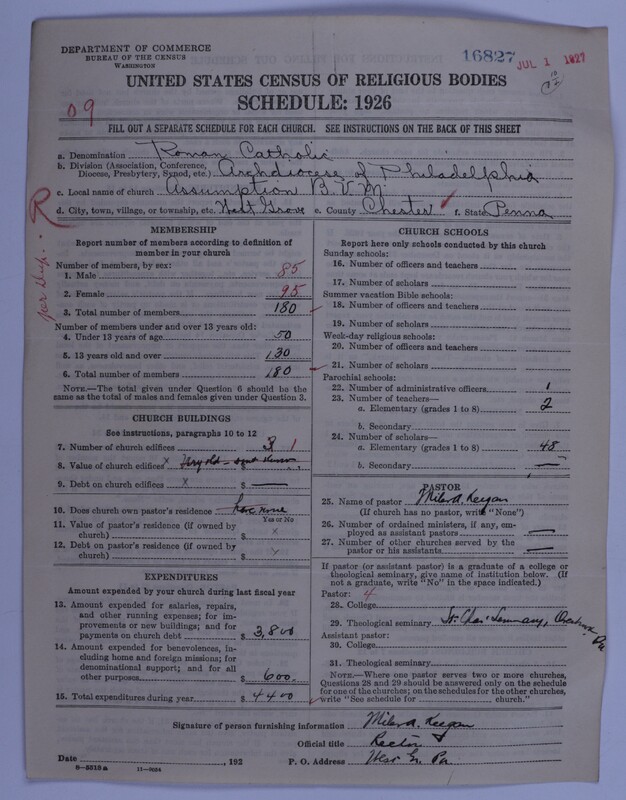 DEPARTMENT OF COMMERCE
BUREAU OF THE CENSUS
WASHINGTON
16827 JUL 1 1927
UNITED STATES CENSUS OF RELIGIOUS BODIES
SCHEDULE: 1926
09
FILL OUT A SEPARATE SCHEDULE FOR EACH CHURCH. SEE INSTRUCTIONS ON THE BACK OF THIS SHEET
a. Denomination Roman Catholic
b. Division (Association, Conference, Diocese, Presbytery, Synod, etc.) Archdiocese of Philadelphia
c. Local name of church Assumption B.V.M.
d. City, town, village, or township, etc. West Grove e. County Chester f. State Penna
R
MEMBERSHIP
Report number of members according to definition of
member in your church
Number of members, by sex:
1. Male 85
2. Female 95
3. Total number of members 180
Number of members under and over 13 years old:
4. Under 13 years of age 50
5. 13 years old and over 130
6. Total number of members 180
NOTE.—The total given under Question 6 should be the
same as the total of males and females given under Question 3.
CHURCH BUILDINGS
See instructions, paragraphs 10 to 12
7. Number of church edifices 1
8. Value of church edifices x Very old
9. Debt on church edifices x $ —
10. Does church own pastor's residence have none
Yes or No
11. Value of pastor's residence (if owned by
church) $ x
12. Debt on pastor's residence (if owned by
church) $ x
EXPENDITURES
Amount expended by your church during last fiscal year
13. Amount expended for salaries, repairs,
and other running expenses; for im-
provements or new buildings; and for
payments on church debt $ 3,800
14. Amount expended for benevolences, in-
cluding home and foreign missions; for
denominational support; and for all
other purposes $ 600.
15. Total expenditures during year $ 4400
CHURCH SCHOOLS
Report here only schools conducted by this church
Sunday schools:
16. Number of officers and teachers
17. Number of scholars
Summer vacation Bible schools:
18. Number of officers and teachers
19. Number of scholars
Week-day religious schools:
20. Number of officers and teachers
21. Number of scholars
Parochial schools:
22. Number of administrative officers 1
23. Number of teachers—
a. Elementary (grades 1 to 8) 2
b. Secondary
24. Number of scholars—
a. Elementary (grades 1 to 8) 48
b. Secondary —
PASTOR
25. Name of pastor Miles A. Keegan
(If church has no pastor, write "None")
26. Number of ordained ministers, if any, em-
ployed as assistant pastors —
27. Number of other churches served by the
pastor or his assistants —
If pastor (or assistant pastor) is a graduate of a college or
theological seminary, give name of institution below. (If
not a graduate, write "No" in the space indicated.)
Pastor: 4
28. College
29. Theological seminary St. Chas' Seminary, Overbrook, Pa
Assistant pastor:
30. College
31. Theological seminary
NOTE.—Where one pastor serves two or more churches,
Questions 28 and 29 should be answered only on the schedule
for one of the churches; on the schedules for the other churches,
write "See schedule for church."
Signature of person furnishing information Miles A. Keegan
Official title Rector
Date , 192 P. O. Address West Gr. Pa.
8—5313 a 11—9024